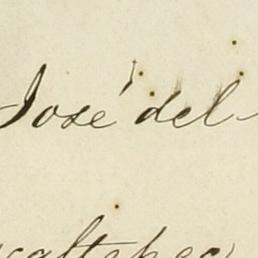 José del
caltepec